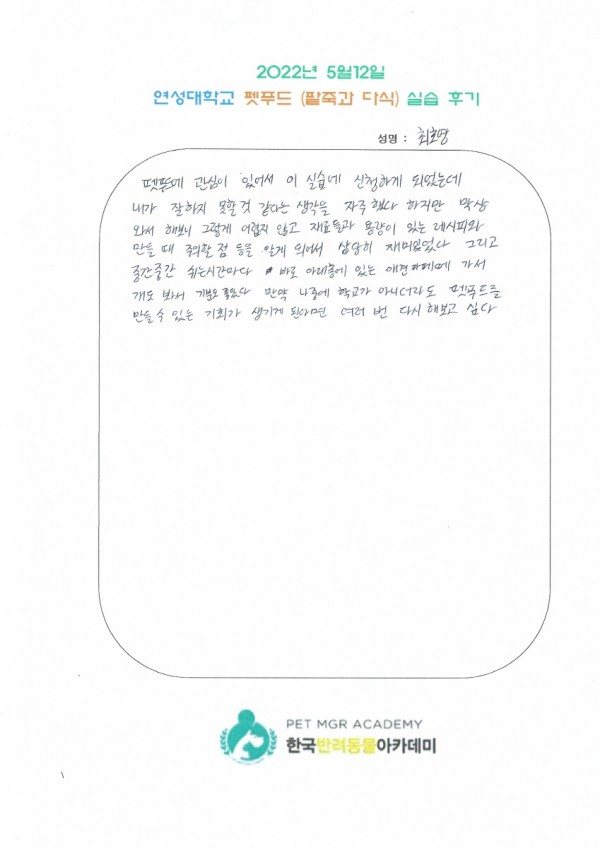 2022년 5월12일
연성대학교 펫푸드 (팥죽과 다식) 실습 후기
성명 : 최호영
펫푸드에 관심이 있어서 이 실습에 신청하게 되었는데
내가 잘하지 못할 것 같다는 생각을 자주 했다 하지만 막상
와서 해보니 그렇게 어렵지 않고 재료들과 용량이 있는 레시피와
만들 때 주의할 점 등을 알게 되어서 상당히 재미있었다 그리고
중간중간 쉬는시간마다 바로 아래층에 있는 애견카페에 가서
개도 봐서 개보 좋았다 만약 나중에 학교가 아니더라도 펫푸드를
만들 수 있는 기회가 생기게 된다면 여러 번 다시 해보고 싶다
PET MGR ACADEMY
한국반려동물아카데미